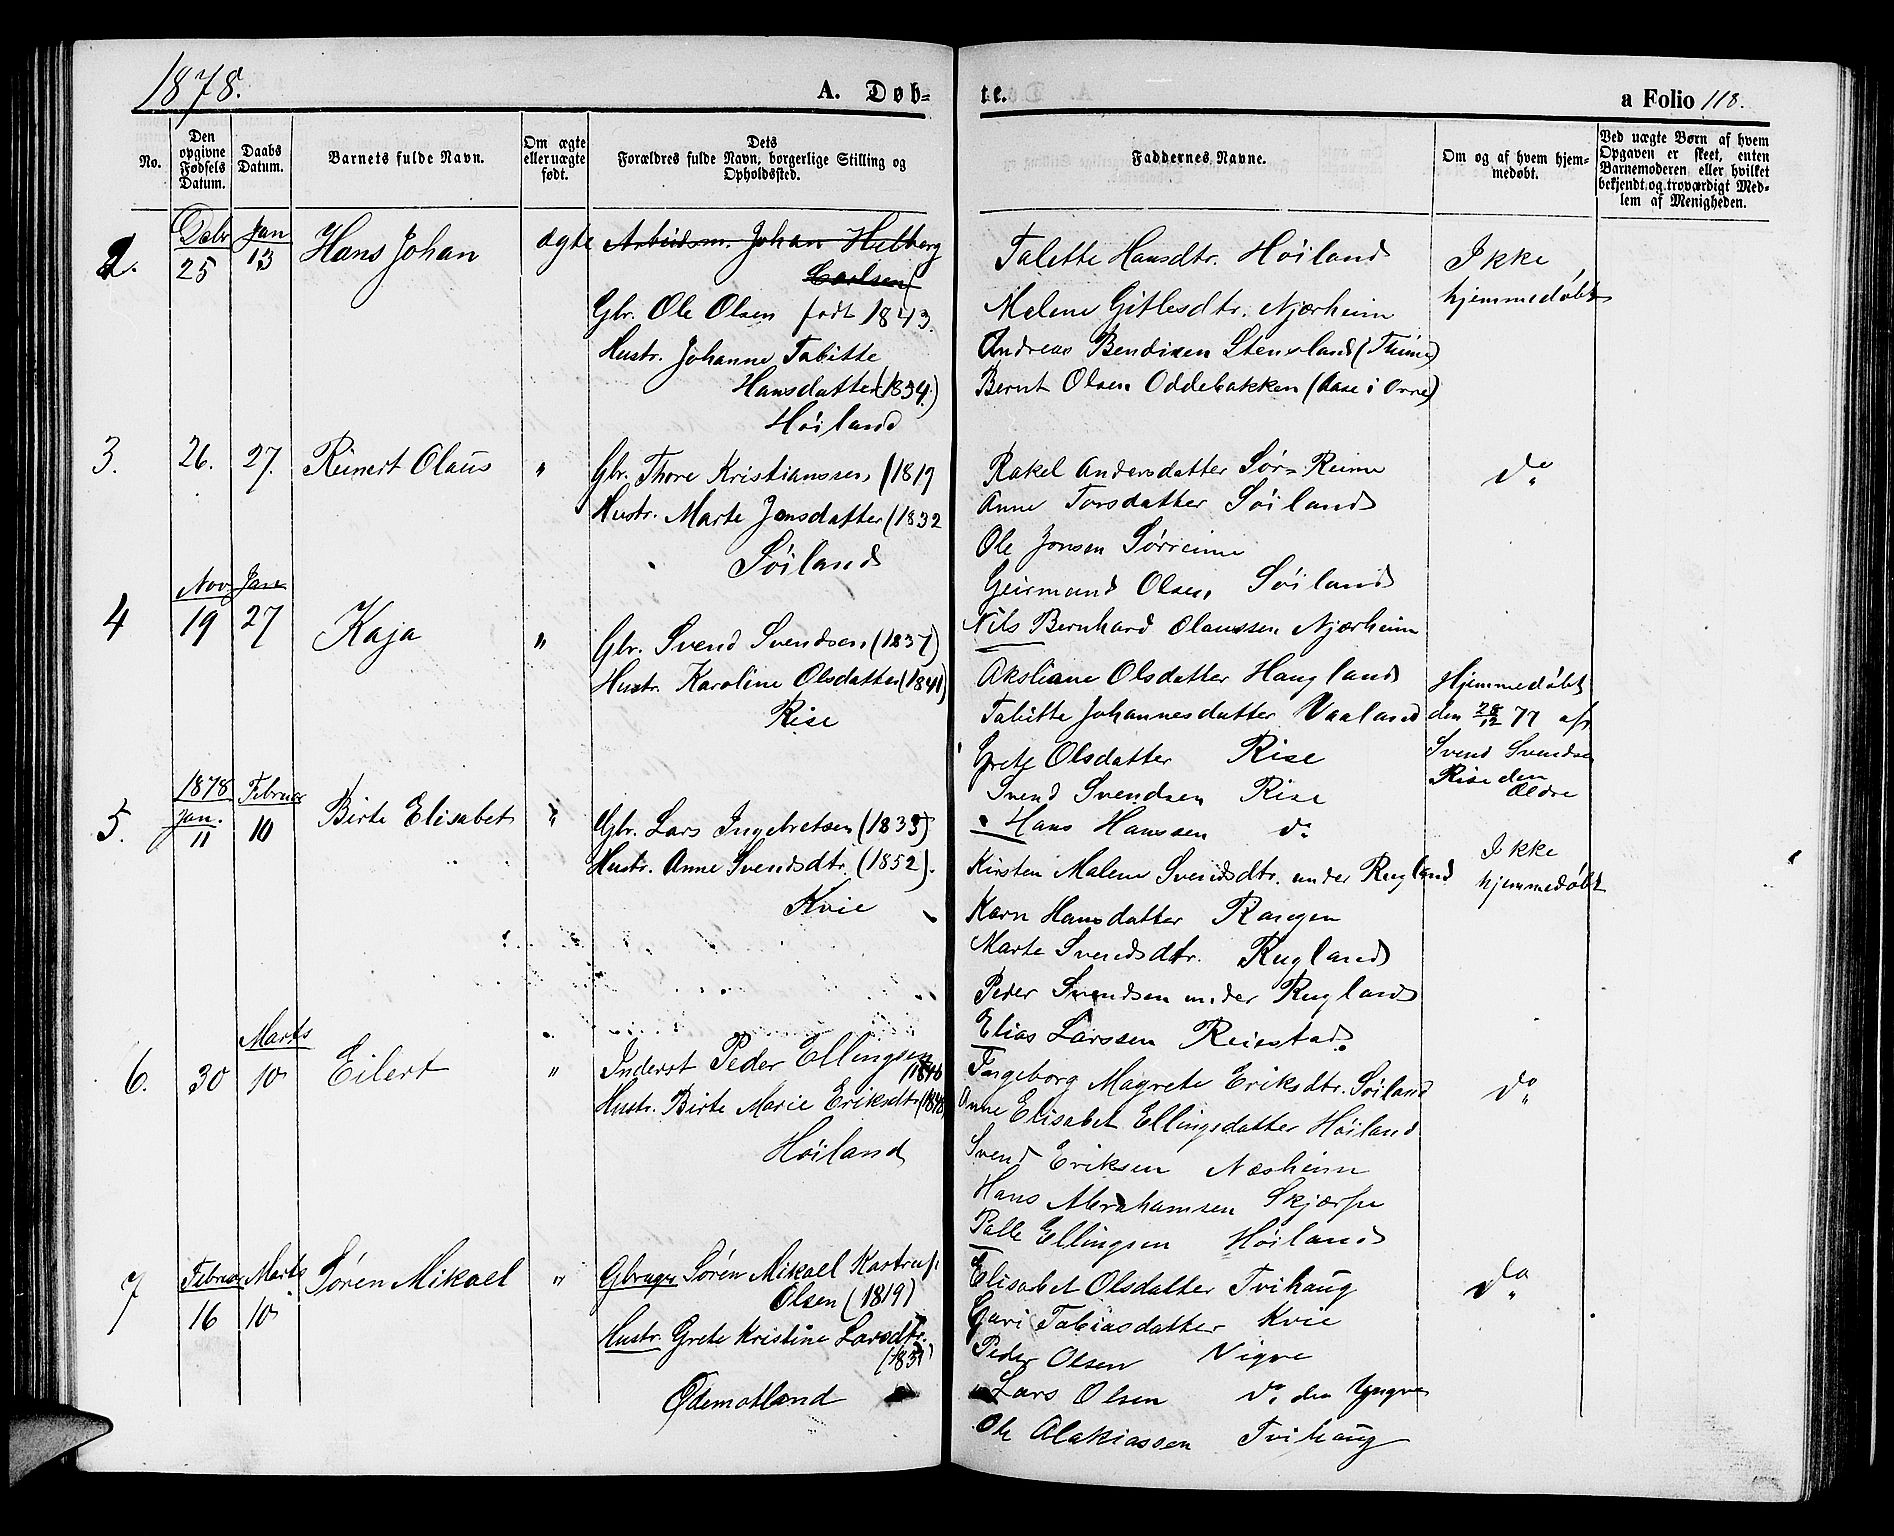 1878.
A. Døb=
te.
a Folio 118.
No.
Den opgivne Fødsels Datum.
Daabs Datum.
Barnets fulde Navn.
Om ægte eller uægte født.
Dets Forældres fulde Navn, borgerlige Stilling og Opholdssted.
Faddernes Navne.
Om og af hvem hjem-medøbt.
Ved uægte Børn af hvem Opgaven er skeet, enten Barnemoderen eller hvilket bekjendt og troværdigt Med-lem af Menigheden.
2.
Decbr 25
Jan 13
Hans Johan
ægte
Arbeidsm. Johan
Carlsen
Gbr. Ole Olsen født 1843.
Hustr. Johanne Tabitte
Hansdatter (1834.)
Höiland
Talette Hansdtr. Höiland
Malene Gitlesdtr. Njærheim
Andreas Bendixen Stensland (Thime)
Bernt Olsen Oddebakken (Aase i Orre)
Ikke
hjemmedøbt
3.
26.
27.
Reinert Olaus
"
Gbr. Thore Kristianssen (1819
Hustr. Marte Jonsdatter (1832
Söiland
Rakel Andersdatter Sør-Reime
Anne Torsdatter Söiland
Ole Jonsen Sørreime
Geirmund Olsen Söiland
Nils Bernhard Olaussen Njærheim
do
4
Nov. 19
Jan 27
Kaja
"
Gbr. Svend Svendsen (1837)
Hustr. Karoline Olsdatter (1841)
Rise
Aksliane Olsdatter Haugland
Tabitte Johannesdatter Vaaland
Grete Olsdatter Rise
Svend Svendsen Rise
Hans Hanssen do
Hjemmedøbt
den 28/12 77 af
Svend Svendsen
Rise den
Ældre
5.
1878 Jan. 11
Februar 10
Birte Elisabet
"
Gbr. Lars Ingebretsen (1833)
Hustr. Anne Svendsdtr. (1852).
Kvie
Kirsten Malene Svendsdtr. under Rugland
Karn Hansdatter Rangen
Marte Svendsdtr. Rugland
Peder Svendsen under Rugland
Elias Larssen Reiestad.
Ikke
hjemmedøbt
6.
30
Marts 10
Eilert
"
Inderst Peder Ellingsen
Hustr. Birte Marie Eriksdtr
Höiland
Ingeborg Magrete Eriksdtr. Söiland
Anne Elisabet Ellingsdatter Höiland
Svend Eriksen Næsheim
Hans Abrahamsen Skjærpe
Palle Ellingsen Höiland
do
7
Februar 16
Marts 10
Søren Mikael
"
Gbruger Søren Mikael Kastrup
Olsen (1819)
Hustr. Grete Kristine Larsdtr.
Ødemotland
Elisabet Olsdatter Tvihaug
Guri Tobiasdatter Kvie
Peder Olsen Vigre
Lars Olsen do den Yngre
Ole Alakiassen Tvihaug
do